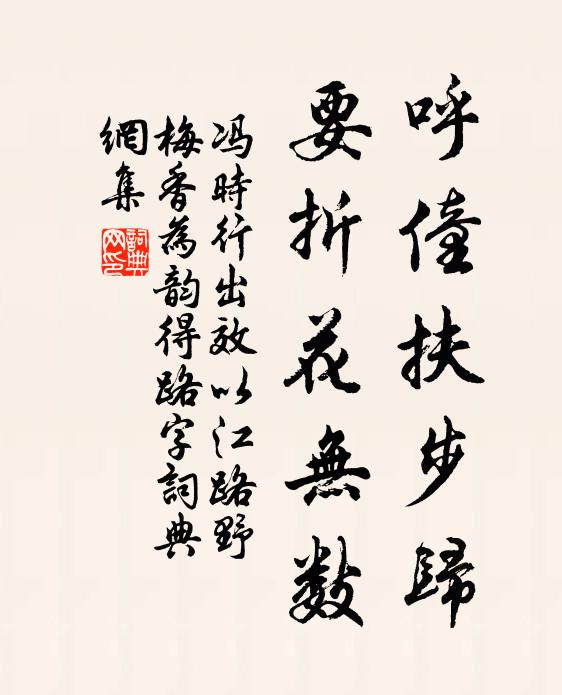 呼僮扶步歸
要折花無數
冯時行出效以江路野
梅香為韵得路字詞典
網集
詞典網印